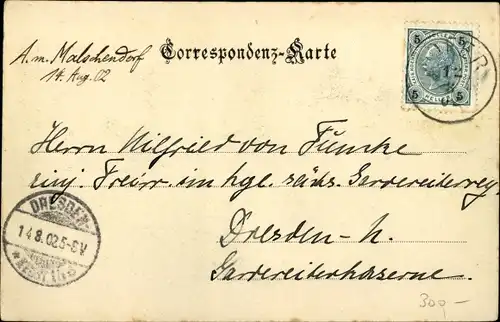 A. m. Malschendorf
14. Aug. 02
Correspondenz-Karte
5 5
5 HELLER 5
Herrn Wilfried von Fumke
einj. Freiw. im kgl. sächs. Gardereiterreg
Dresden-N.
Gardereiterkaserne.
DRESDEN
14.8.02.5-6V
300,-